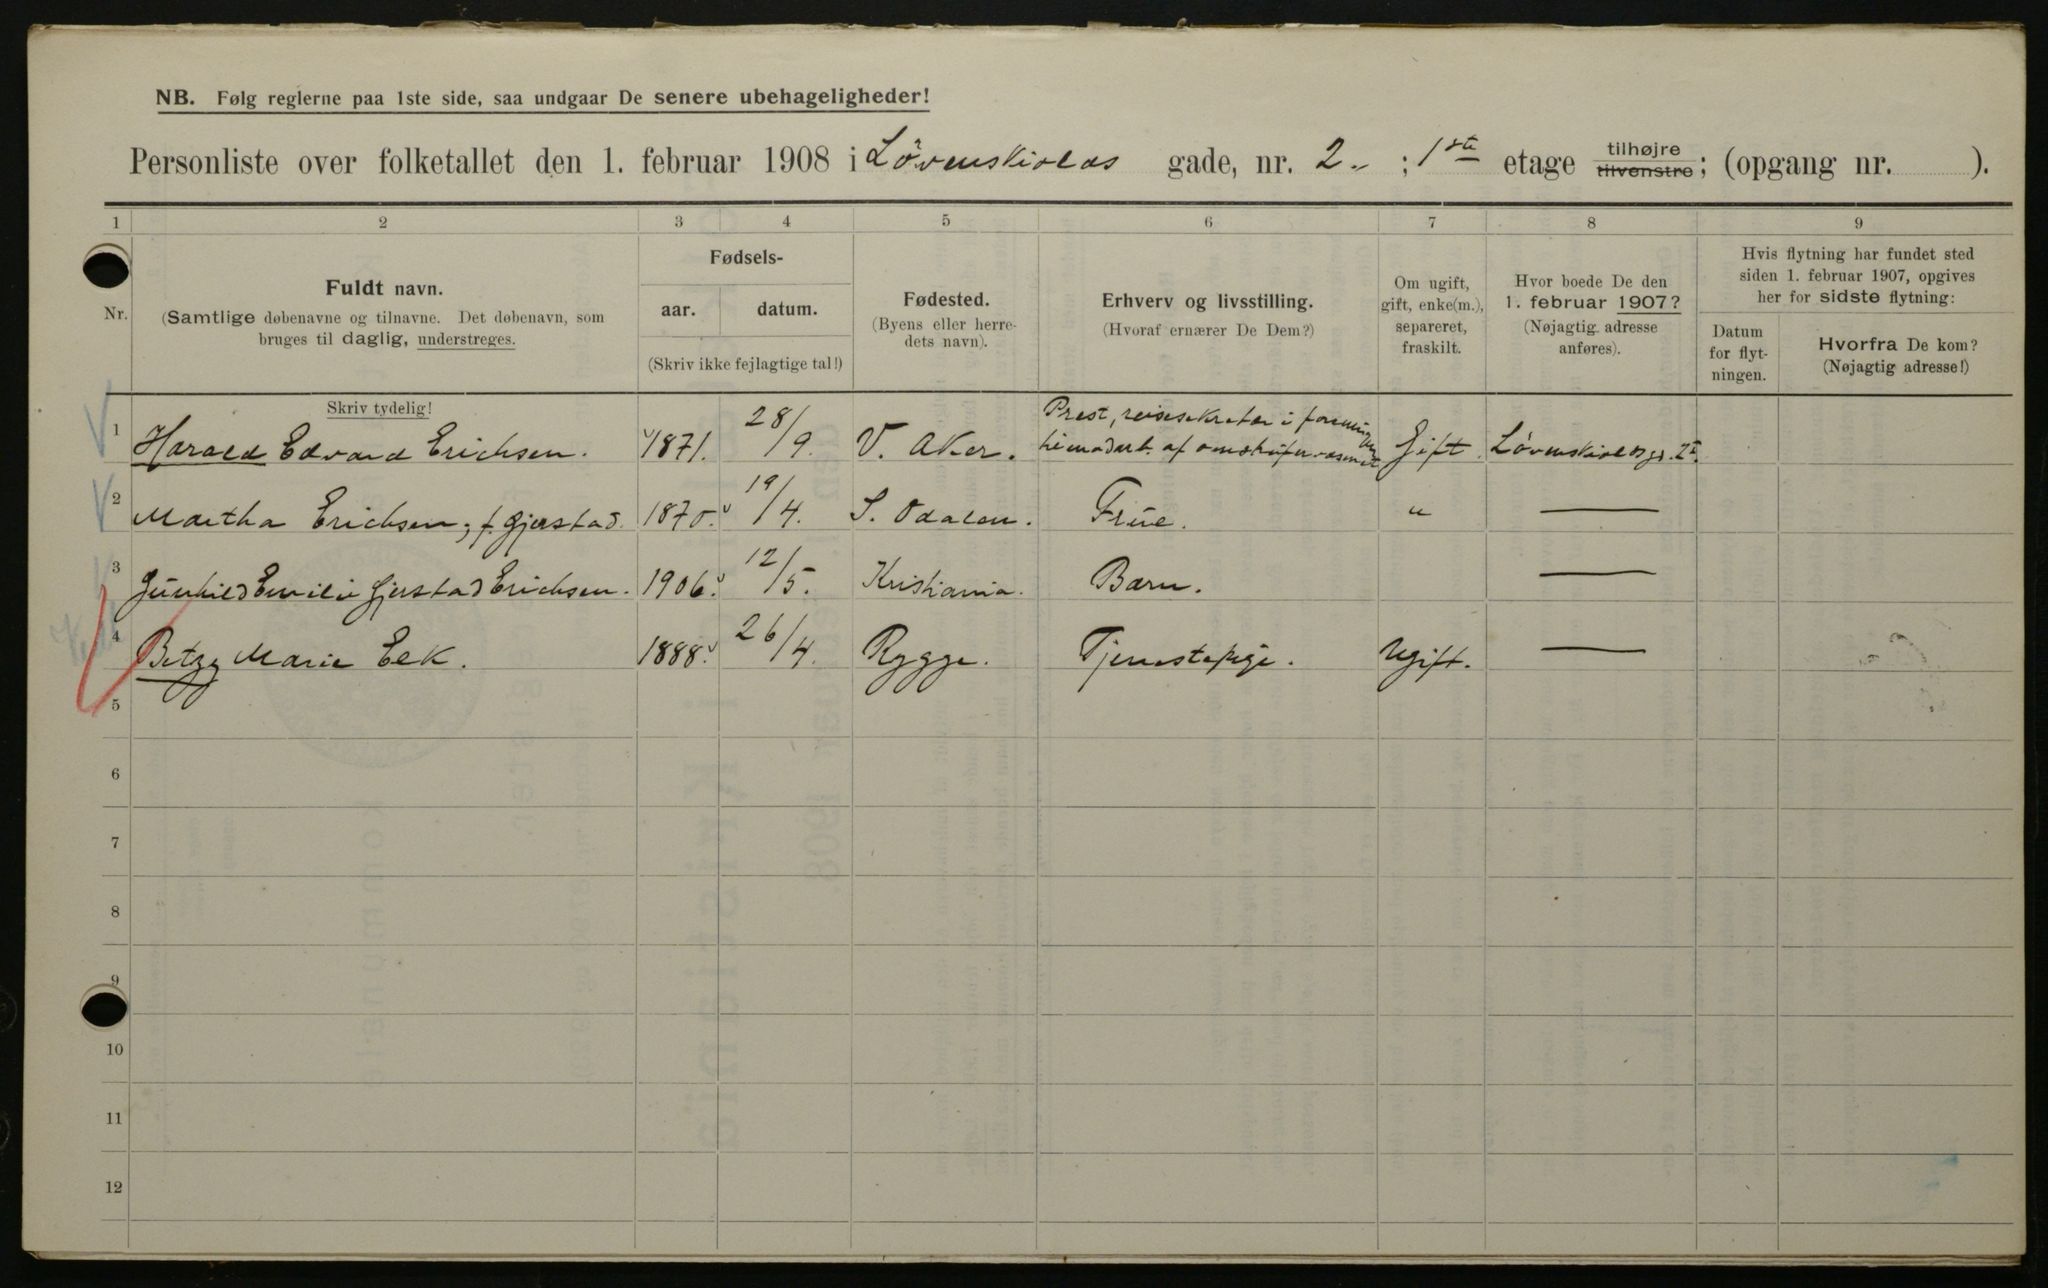 NB. Følg reglerne paa 1ste side, saa undgaar De senere ubehageligheder!
Personliste over folketallet den 1. februar 1908 i Lövenskiolds gade, nr. 2. ; 1ste etage tilhøjre tilvenstre; (opgang nr. ).
1 2 3 4 5 6 7 8 9
Nr.
Fuldt navn.
(Samtlige døbenavne og tilnavne. Det døbenavn, som
bruges til daglig, understreges.
Skriv tydelig!
Fødsels-
aar. datum.
(Skriv ikke fejlagtige tal!)
Fødested.
(Byens eller herre-
dets navn).
Erhverv og livsstilling.
(Hvoraf ernærer De Dem?)
Om ugift,
gift, enke(m.),
separeret,
fraskilt.
Hvor boede De den
1. februar 1907?
(Nøjagtig adresse
anføres).
Hvis flytning har fundet sted
siden 1. februar 1907, opgives
her for sidste flytning:
Datum
for flyt-
ningen.
Hvorfra De kom?
(Nøjagtig adresse!)
1 Harald Edvard Erichsen. 1871. 28/9. V. Aker. Prest, reisesekretær i forening gift Lövenskioldsgd. 2 I.
2 Martha Erichsen, f. Gjerstad. 1870. 19/4. S. Odalen. Frue. " —
3 Gunhild Emilie Gjerstad Erichsen. 1906. 12/5. Kristiania. Barn. —
4 Betzy Marie Eek. 1888. 26/4. Rygge. Tjenestepige. Ugift. —
5
6
7
8
9
10
11
12